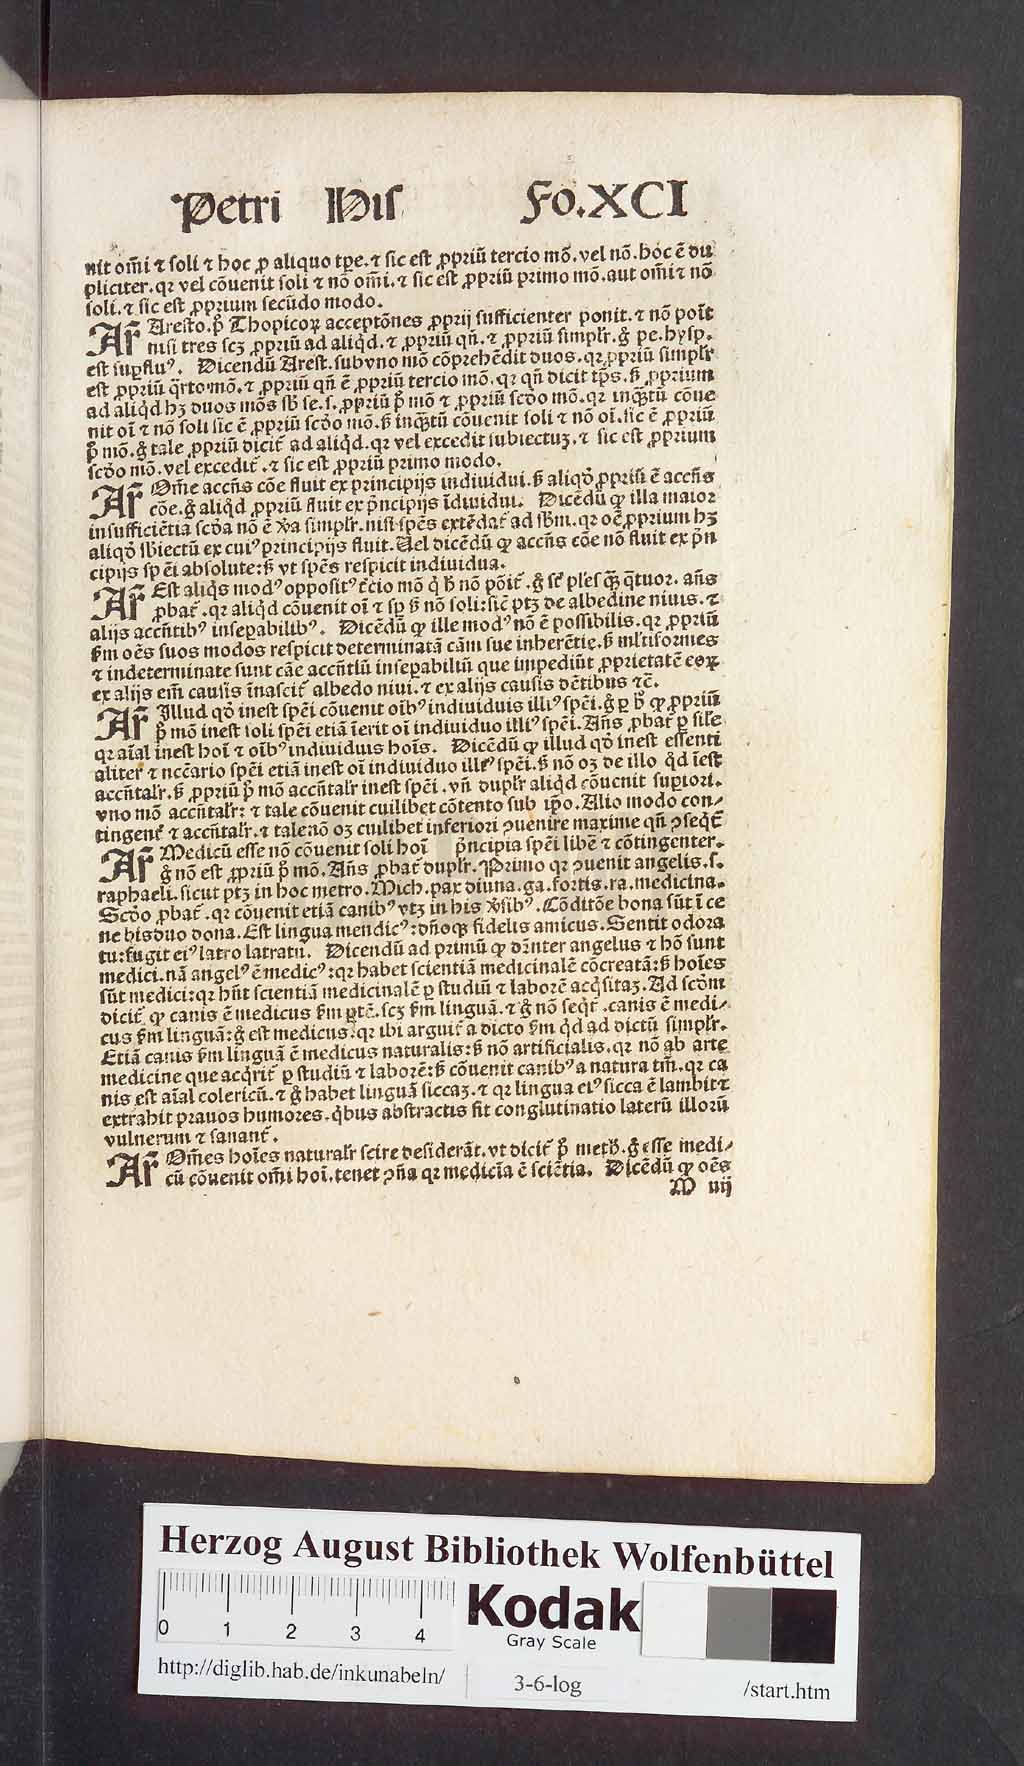 Petri His Fo.XCI
nit om̄i ⁊ soli ⁊ hoc ꝓ aliquo tꝑe.⁊ sic est ꝓpriū tercio mō.vel nō.hoc ē du
pliciter.qꝛ vel cōuenit soli ⁊ nō om̄i.⁊ sic est ꝓpriū primo mō.aut om̄i ⁊ nō
soli.⁊ sic est ꝓprium secūdo modo.
Ar̄ Aresto.p̄ Thopicoꝝ acceptōnes ꝓprij sufficienter ponit.⁊ nō poīt
nisi tres scꝫ ꝓpriū ad aliqd̄.⁊ ꝓpriū qn̄.⁊ ꝓpriū simplr̄.ḡ pe.hysp.
est suꝑfluꝰ. Dicendū Arest.subvno mō cōprehēdit duos.qꝛ ꝓpriū simplr̄
est ꝓpriū q̄rto mō.⁊ ꝓpriū qn̄ ē ꝓpriū tercio mō.qꝛ qn̄ dicit tp̄s.ß ꝓprium
ad aliqd̄ hꝫ duos mōs sb̄ se.s.ꝓpriū p̄ mō ⁊ ꝓpriū scd̄o mō.qꝛ inqꝫtū cōue
nit oī ⁊ nō soli sic ē ꝓpriū scd̄o mō.ß inqꝫtū cōuenit soli ⁊ nō oī.sic ē ꝓpriū
p̄ mō.ḡ tale ꝓpriū dicit̄ ad aliqd̄.qꝛ vel excedit subiectuꝫ.⁊ sic est ꝓprium
scd̄o mō.vel excedit̄.⁊ sic est ꝓpriū primo modo.
Ar̄ Om̄e accn̄s cōe fluit ex principijs indiuidui.ß aliqd̄ ꝓpriū ē accn̄s
cōe.ḡ aliqd̄ ꝓpriū fluit ex p̄ncipijs īdiuidui. Dicēdū ꝙ illa maior
insufficiētia scd̄a nō ē v̄a simplr̄.nisi spēs extēdat̄ ad sb̄m.qꝛ oē ꝓprium hꝫ
aliqd̄ sb̄iectū ex cuiꝰ principijs fluit.Uel dicēdū ꝙ accn̄s cōe nō fluit ex p̄n
cipijs sp̄ei absolute:ß vt spēs respicit indiuidua.
Ar̄ Est aliq̄s modꝰ oppositꝰ t̄cio mō q̇ h̄ nō pōit̄.ḡ st̄ ples qꝫ q̄tuor.an̄s
ꝓbat̄.qꝛ aliqd̄ cōuenit oī ⁊ sꝑ ß nō soli:sic ptꝫ de albedine niuis.⁊
alijs accn̄tibꝰ insepabilibꝰ. Dicēdū ꝙ ille modꝰ nō ē possibilis.qꝛ ꝓpriū
ßm oēs suos modos respicit determinatā cām sue inherētie.ß ml̄tiformes
⁊ indeterminate sunt cāe accn̄tiū insepabiliū que impediūt ꝓprietatē eoꝝ
ex alijs em̄ causis īnascit̄ albedo niui.⁊ ex alijs causis dētibus ⁊c̄.
Ar̄ Illud qd̄ inest spēi cōuenit oībꝰ indiuiduis illiꝰ spēi.ḡ ꝑ h̄ ꝙ ꝓpriū
p̄ mō inest soli spēi etiā īerit oī indiuiduo illiꝰ spēi.An̄s ꝓbat̄ ꝑ sile
qꝛ aīal inest hoī ⁊ oībꝰ indiuiduis hoīs. Dicēdū ꝙ illud qd̄ inest essenti
aliter ⁊ nccāario spēi etiā inest oī indiuiduo illiꝰ spēi.ß nō oꝫ de illo qd̄ īest
accn̄talr̄.ß ꝓpriū p̄ mō accn̄talr̄ inest spēi.vn̄ duplr̄ aliqd̄ cōuenit supiori.
vno mō accn̄talr̄:⁊ tale cōuenit cuilibet cōtento sub ip̄o.Alio modo con-
tingent̄ ⁊ accn̄talr̄.⁊ tale nō oꝫ cuilibet inferiori ꝯuenire maxime qn̄ ꝯseqt̄
Ar̄ Medicū esse nō cōuenit soli hoī p̄ncipia spēi libē ⁊ cōtingenter.
ḡ nō est ꝓpriū p̄ mō.An̄s ꝓbat̄ duplr̄.Primo qꝛ ꝯuenit angelis.s.
raphaeli.sicut ptꝫ in hoc metro.Mich.pax diuna.ga.fortis.ra.medicina.
Scd̄o ꝓbat̄.qꝛ cōuenit etiā canibꝰ vtꝫ in his v̄sibꝰ.Cōditōe bona sūt ī ce
ne bisduo dona.Est lingua mendicꝰ:dn̄oqꝫ fidelis amicus.Sentit odora
tu:fugit eiꝰ latro latratū. Dicendū ad primū ꝙ dr̄nter angelus ⁊ hō sunt
medici.nā angelꝰ ē medicꝰ:qꝛ habet scientiā medicinalē cōcreatā:ß hoīes
sūt medici:qꝛ hn̄t scientiā medicinalē ꝑ studiū ⁊ laborē acq̄sitaꝫ.Ad scd̄m
dicit̄ ꝙ canis ē medicus ßm ꝑtē.scꝫ ßm linguā.⁊ ḡ nō seqt̄.canis ē medi-
cus ßm linguā:ḡ est medicus.qꝛ ibi arguit̄ a dicto ßm qd̄ ad dictū simplr̄.
Etiā canis ßm linguā ē medicus naturalis:ß nō artificialis.qꝛ nō ab arte
medicine que acq̄rit̄ ꝑ studiū ⁊ laborē:ß cōuenit canibꝰ a natura tm̄.qꝛ ca
nis est aīal colericū.⁊ ḡ habet linguā siccaꝫ.⁊ qꝛ lingua eiꝰ sicca ē lambit ⁊
extrahit prauos humores.q̇bus abstractis fit conglutinatio laterū illorū
vulnerum ⁊ sanant̄.
Ar̄ Om̄es hoīes naturalr̄ scire desiderāt.vt dicit̄ p̄ meth̄.ḡ esse medi-
cū cōuenit om̄i hoī.tenet ꝯn̄a qꝛ medicīa ē sciētia. Dicēdū ꝙ oēs
M iiij
Herzog August Bibliothek Wolfenbüttel
0 1 2 3 4
Kodak
Gray Scale
http://diglib.hab.de/inkunabeln/ 3-6-log /start.htm